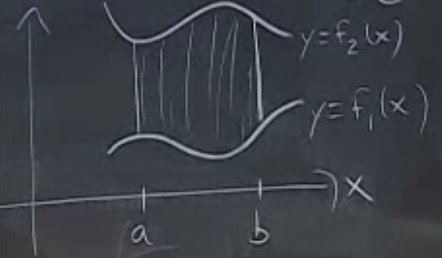 y=f₂(x)
y=f₁(x)
x
a
b